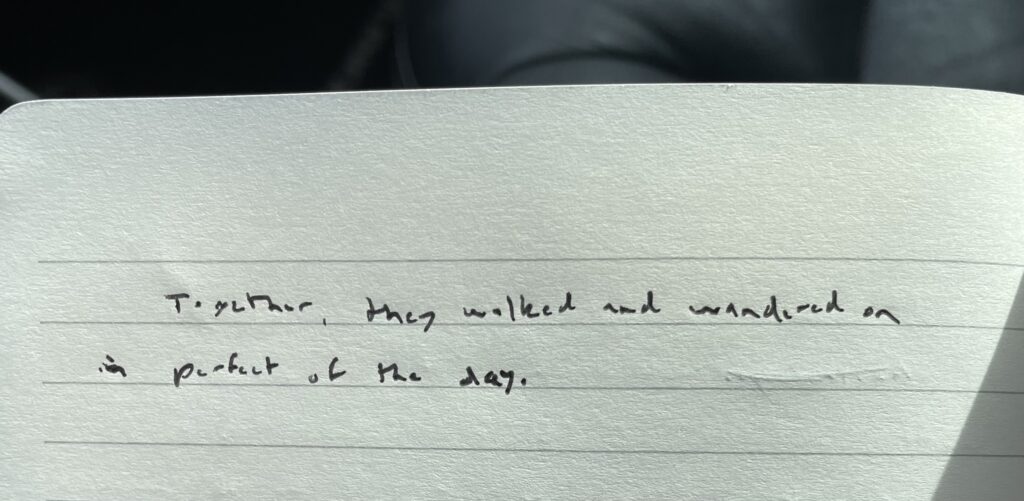 Together, they walked and wandered on
in perfect of the day.